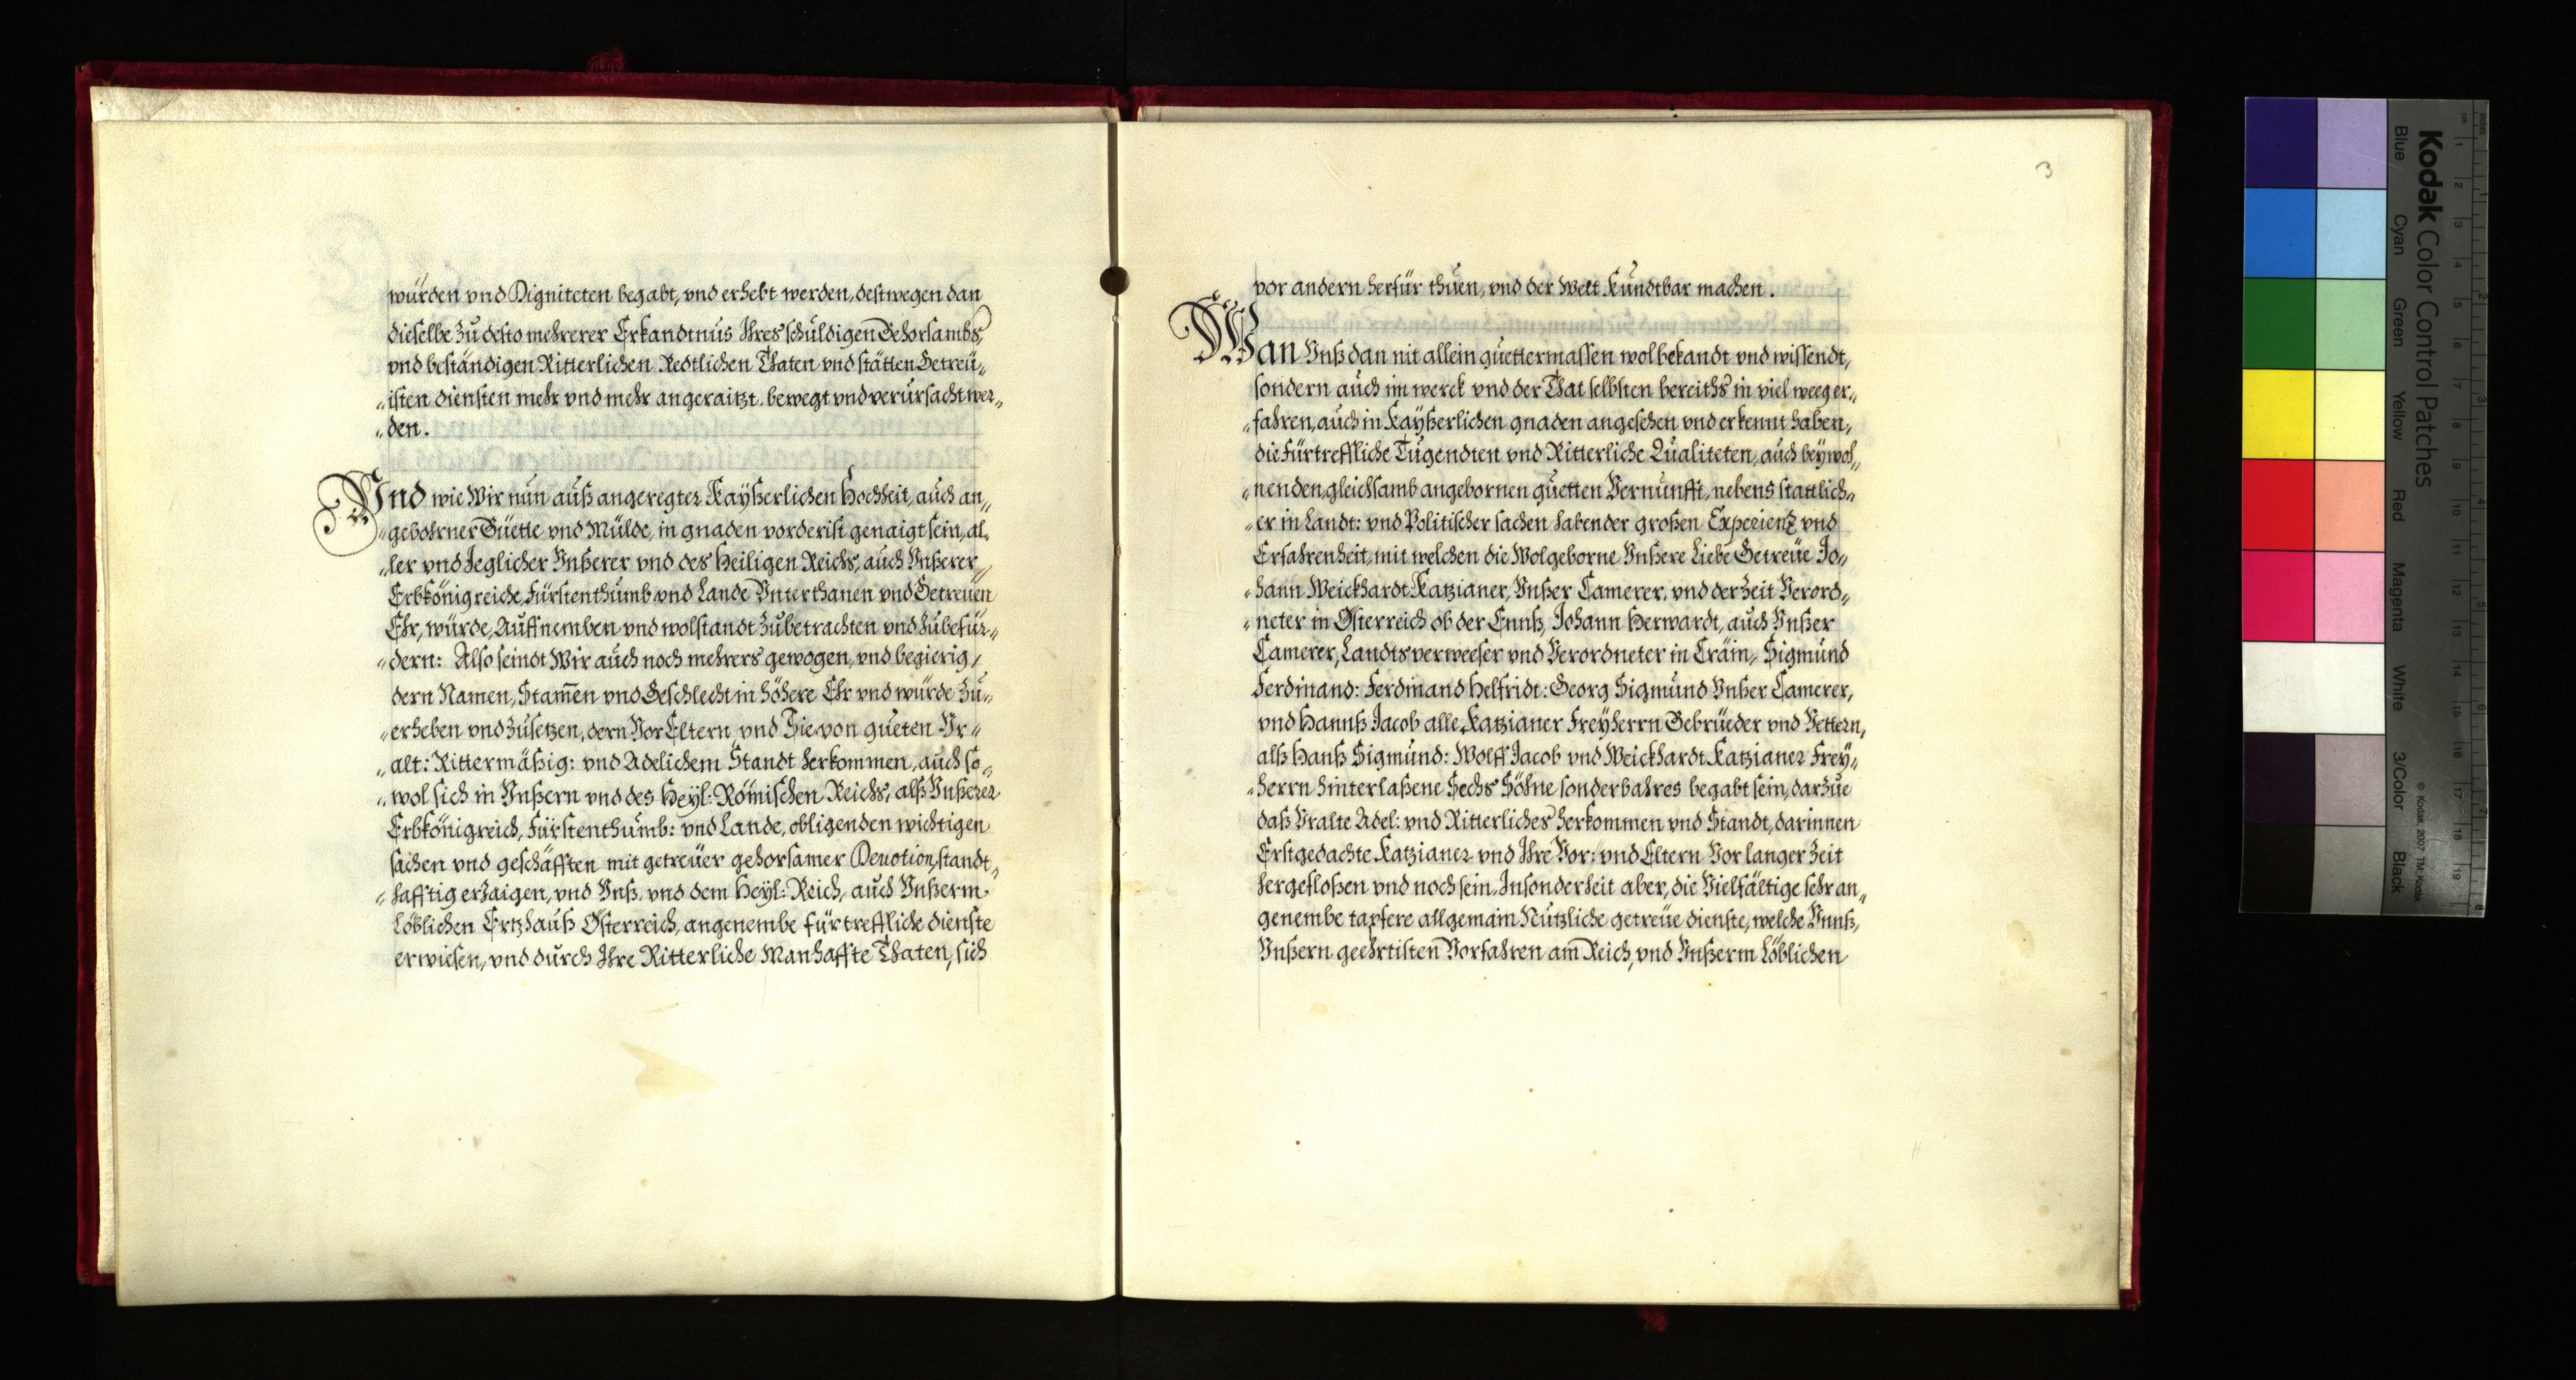 würden vnd Digniteten begabt, vnd erhebt werden, destwegen dan
dieselbe zu desto mehrerer Erkandtnus Ihres schuldigen Gehorsambs,
vnd beständigen Ritterlichen Redtlichen Thaten vnd stätten Getreü„
„isten diensten mehr vnd mehr angeraitzt, bewegt vnd verursacht wer„
„den.
Vnd wie Wir nun auß angeregter Kayßerlichen Hochheit, auch an„
„gebohrner Güette vnd Mülde, in gnaden vorderist genaigt sein, al„
„ler vnd Jeglicher Vnßerer vnd des Heiligen Reichs, auch Vnßerer
Erbkönigreiche, Fürstenthumb vnd Lande Vnterthanen vnd Getreuen
Ehr, würde, Auffnemben vnd wolstandt zubetrachten vnd zubefür„
„dern: Also seindt Wir auch noch mehrers gewogen, vnd begierig,
dern Namen, Stam̄en vnd Geschlecht in höhere Ehr vnd würde zu„
„erheben vnd zusetzen, dern Vor Eltern, vnd Sie von gueten Vr„
„alt: Rittermäßig: vnd Adelichem Standt herkommen, auch so„
„wol sich in Vnßern vnd des Heyl: Römischen Reichs, alß Vnßerer
Erbkönigreich, Fürstenthumb: vnd Lande, obligenden wichtigen
sachen vnd geschäfften mit getreuer gehorsamer Deuotion, standt„
„hafftig erzaigen, vnd Vnß, vnd dem Heyl: Reich, auch Vnßerm
Löblichen Ertzhauß Österreich, angenembe fürtreffliche dienste
erwiesen, vnd durch Ihre Ritterliche Manhaffte Thaten, sich
3
vor andern herfür thuen, vnd der Welt Kundtbar machen.
Wan Vnß dan nit allein guettermassen wol bekandt vnd wissendt,
sondern auch im werck vnd der That selbsten bereiths in viel weeg er„
„fahren, auch in Kayßerlichen gnaden angesehen vnd erkennt haben,
die Fürtreffliche Tugendten vnd Ritterliche Qualiteten, auch beywoh„
„nenden, gleichsamb angebornen guetten Vernunfft, nebens stattlich„
„er in Landt: vnd Politischer sachen habender großen Experienz vnd
Erfahrenheit, mit welchen die Wolgeborne Vnßere Liebe Getreüe Jo„
„hann Weickhardt Katzianer, Vnßer Camerer, vnd der Zeit Verord„
„neter in Österreich ob der Ennß, Johann Herwardt, auch Vnßer
Camerer, Landtsverweeser vnd Verordneter in Cräin, Sigmund
Ferdinand: Ferdinand Helfridt: Georg Sigmund Vnßer Camerer,
vnd Hannß Jacob alle Katzianer Freyherrn Gebrüeder vnd Vettern,
alß Hanß Sigmund: Wolff Jacob vnd Weickhardt Katzianer Frey„
„herrn hinterlaßene Sechs Söhne sonderbahres begabt sein, darzue
daß Vralte Adel: vnd Ritterliches herkommen vnd Standt, darinnen
Erstgedachte Katzianer vnd Ihre Vor: vnd Eltern Vor langer Zeit
hergefloßen vnd noch sein, Insonderheit aber, die Vielfältige sehr an„
genembe tapfere allgemain Nutzliche getreüe dienste, welche Vnnß,
Vnßern geehrtisten Vorfahren am̄ Reich, vnd Vnßerm Löblichen
Kodak Color Control Patches
© Kodak, 2007 TM: Kodak
Blue
Cyan
Green
Yellow
Red
Magenta
White
3/Color
Black